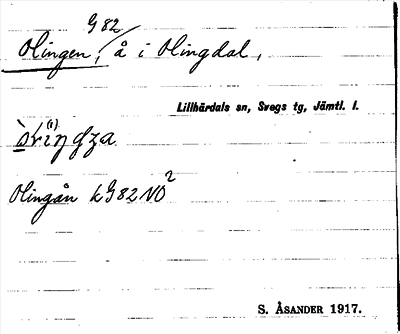 G 82
Olingen, å i Olingdal,
Lillhärdals sn, Svegs tg, Jämtl. l.
Olingån k G82 NO²
S. ÅSANDER 1917.